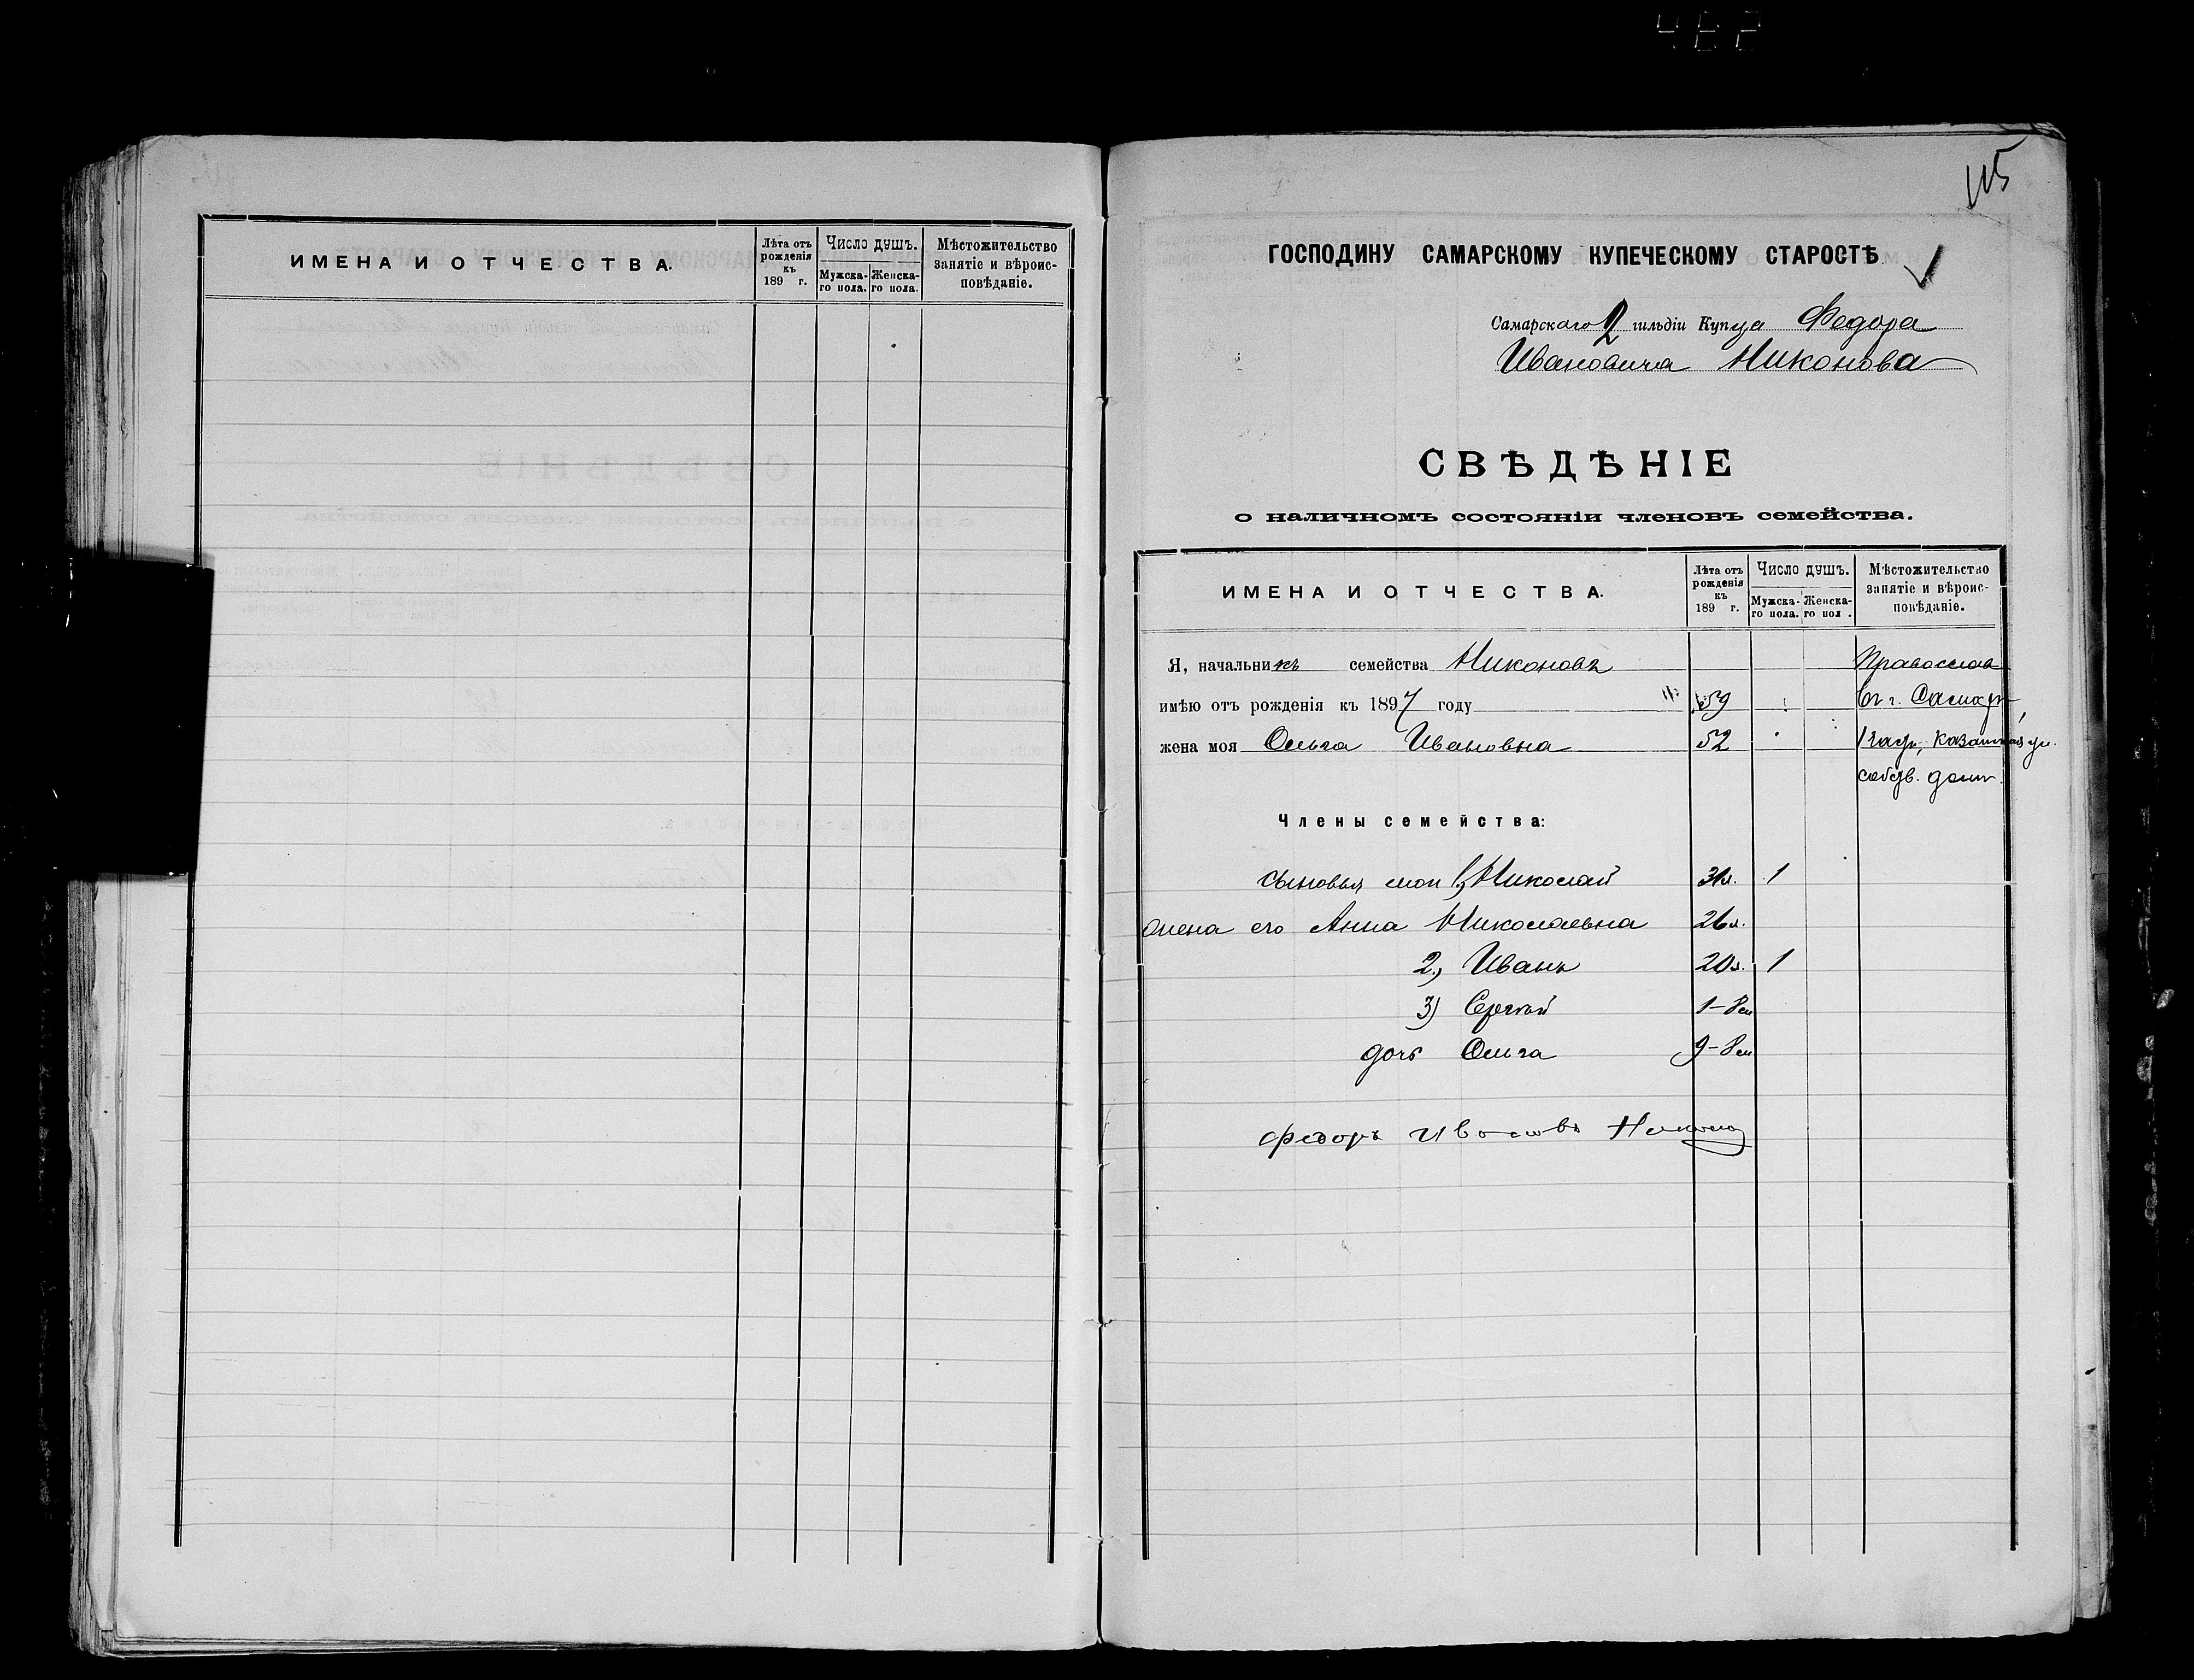 ИМЕНА И ОТЧЕСТВА.
Лѣта отъ рожденія къ 189 г.
Число душъ.
Мужска-го пола.
Женска-го пола.
Мѣстожительство занятіе и вѣроис-повѣданіе.
115
ГОСПОДИНУ САМАРСКОМУ КУПЕЧЕСКОМУ СТАРОСТѢ
Самарскаго 2 гильдіи Купца Федора
Ивановича Никонова
СВѢДѢНІЕ
о наличномъ состояніи членовъ семейства.
ИМЕНА И ОТЧЕСТВА.
Лѣта отъ рожденія къ 189 г.
Число душъ.
Мужска-го пола.
Женска-го пол .
Мѣстожительство занятіе и вѣроис-повѣданіе.
Я, начальникъ семейства Никоновъ Православ
имѣю отъ рожденія къ 1897 году 59 въ г. Самарѣ,
жена моя Ольга Ивановна 52 1 част, Казанская ул.
собств. домъ.
Члены семейства:
сыновья мои 1, Николай 31 л. 1
жена его Анна Николаевна 26 л.
2, Иванъ 20 л. 1
3) Сергѣй 1-8 м
дочь Ольга 9-8 м
Федоръ Ивановъ Никоно